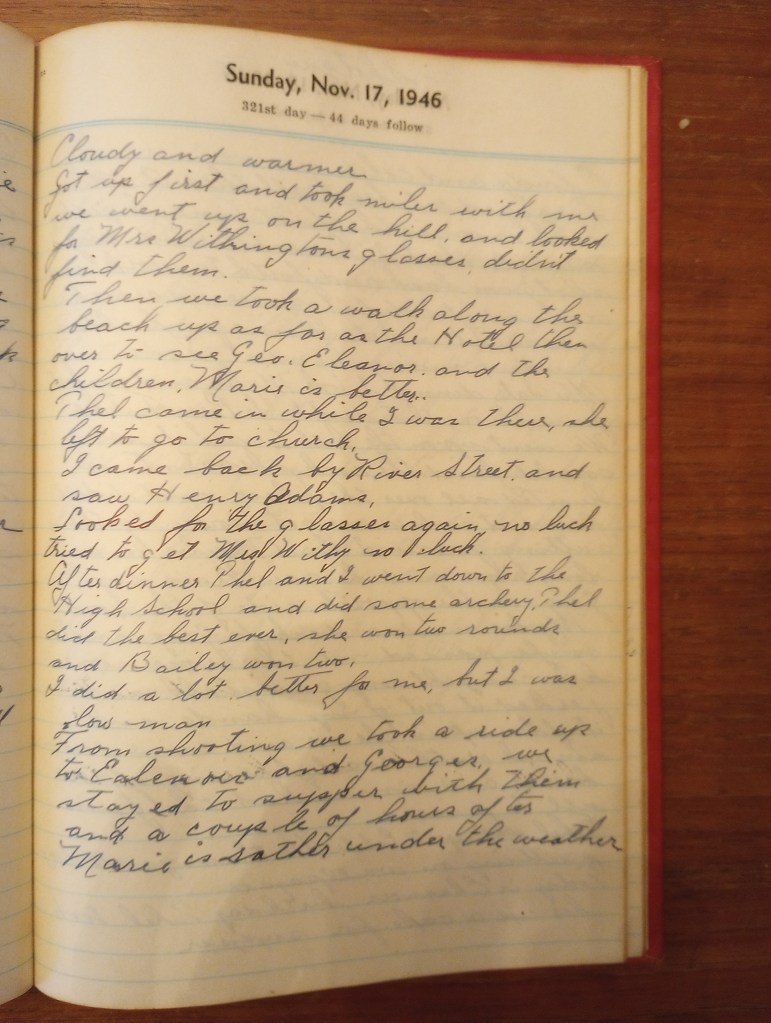 Sunday, Nov. 17, 1946
321st day — 44 days follow
Cloudy and warmer
Got up first and took miler with me
we went up on the hill. and looked
for Mrs Withingtons glasses, didnt
find them.
Then we took a walk along the
beach up as far as the Hotel then
over to see Geo. Eleanor. and the
children, Marie is better..
Phel came in while I was there, she
left to go to church.
I came back by River Street. and
saw Henry Adams.
Looked for the glasses again, no luck
tried to get Mrs Withy no luck.
After dinner Phel and I went down to the
High School and did some archery, Phel
did the best ever, she won two rounds
and Bailey won two.
I did a lot better for me, but I was
low man
From shooting we took a ride up
to and Georges, we
stayed to supper with them
and a couple of hours after
Marie is rather under the weather